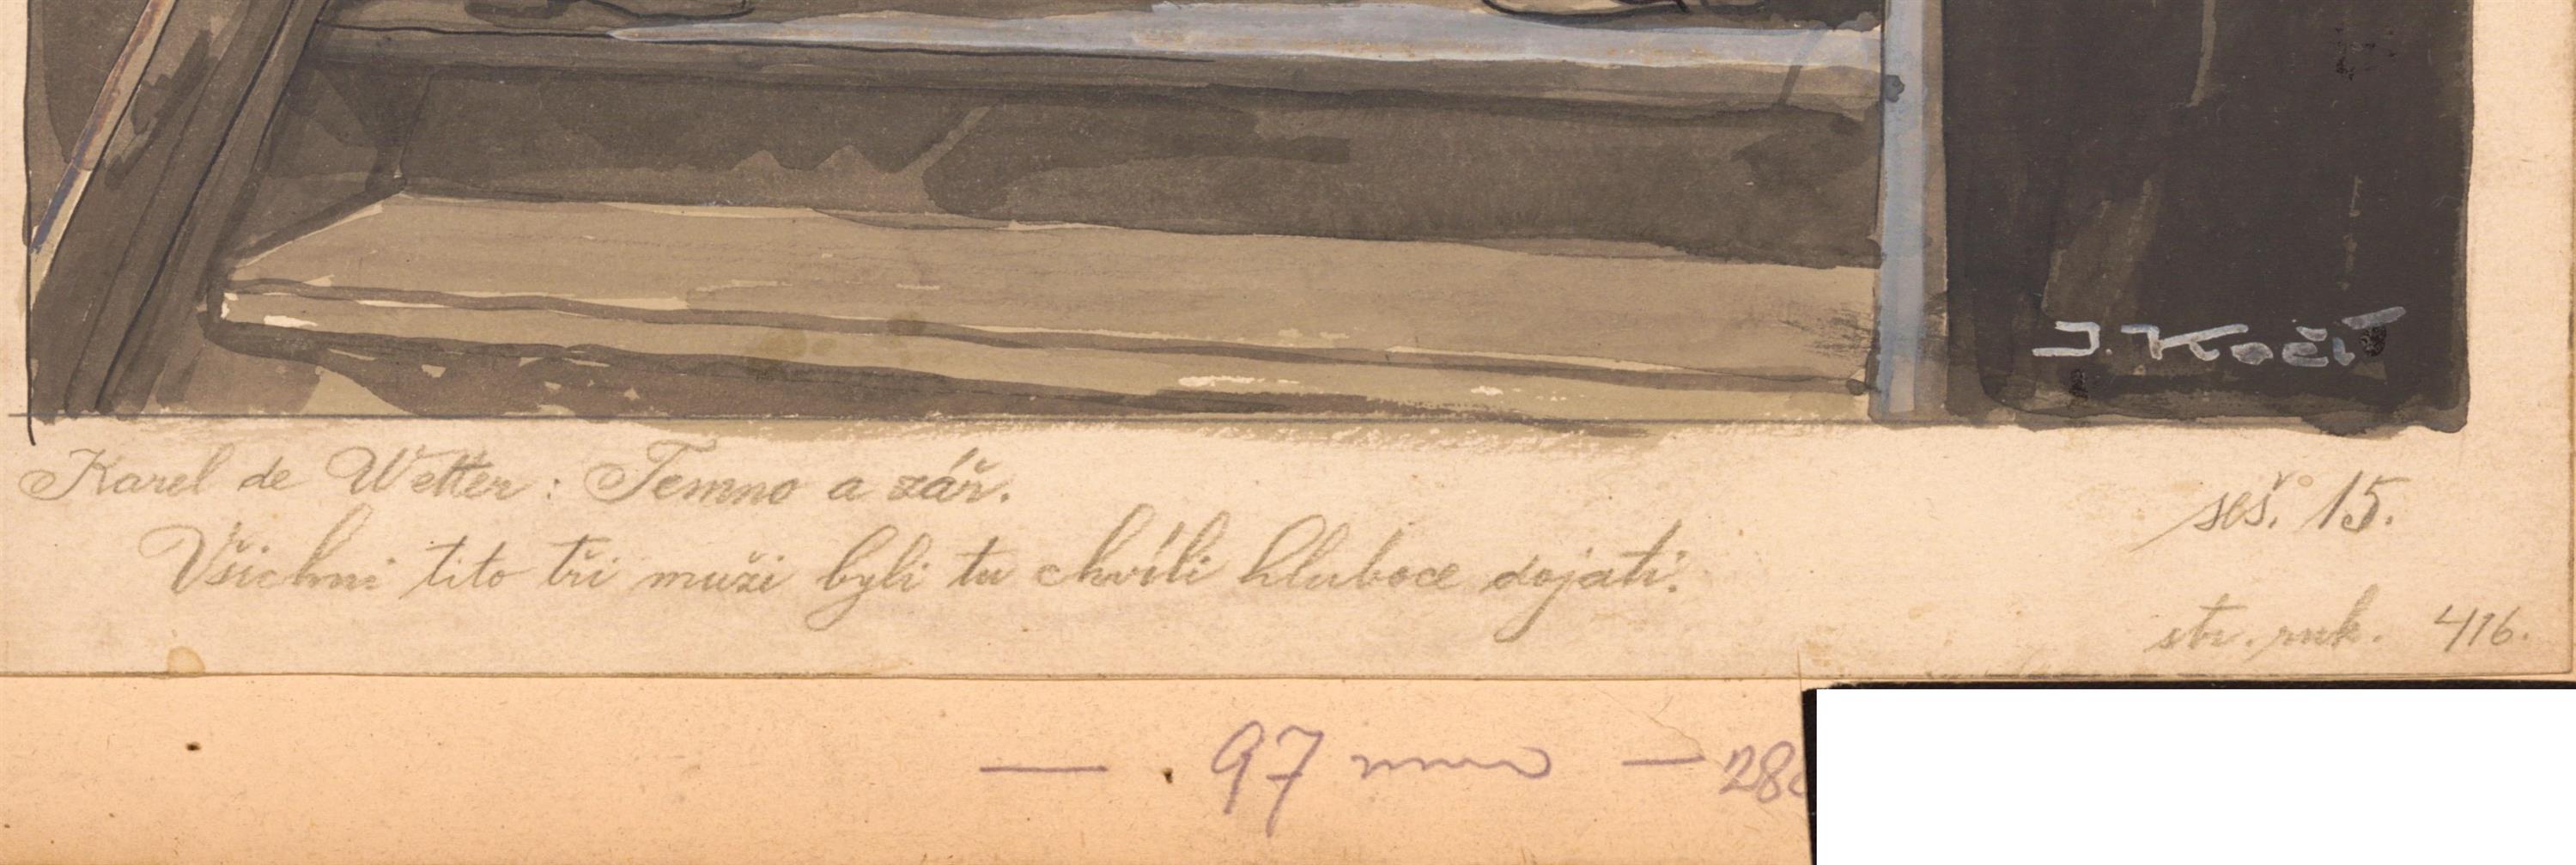 J. Kočí
Karel de Wetter: Temno a zář.
seš. 15.
Všichni tito tři muži byli tu chvíli hluboce dojati.
str. ruk. 416.
— 97 mm — 28